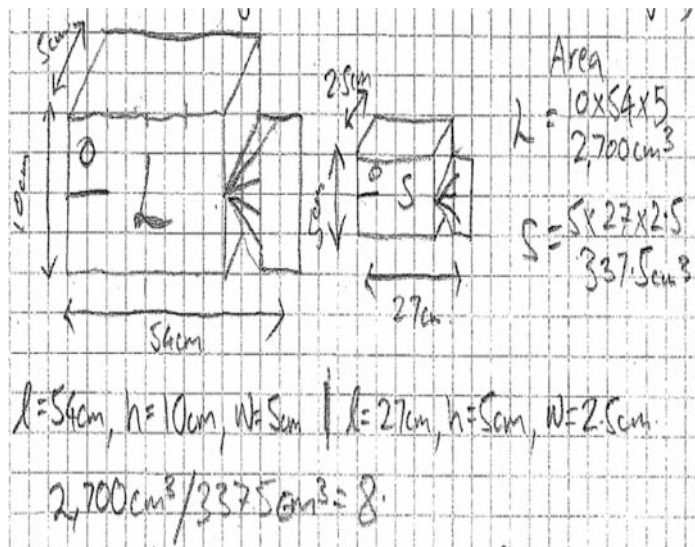 5cm
10cm
L
54cm
2.5cm
5cm
S
27cm
Area
L = 10x54x5
2,700cm³
S = 5x27x2.5
337.5cm³
l=54cm, h=10cm, W=5cm | l=27cm, h=5cm, W=2.5cm.
2,700cm³/337.5cm³=8.